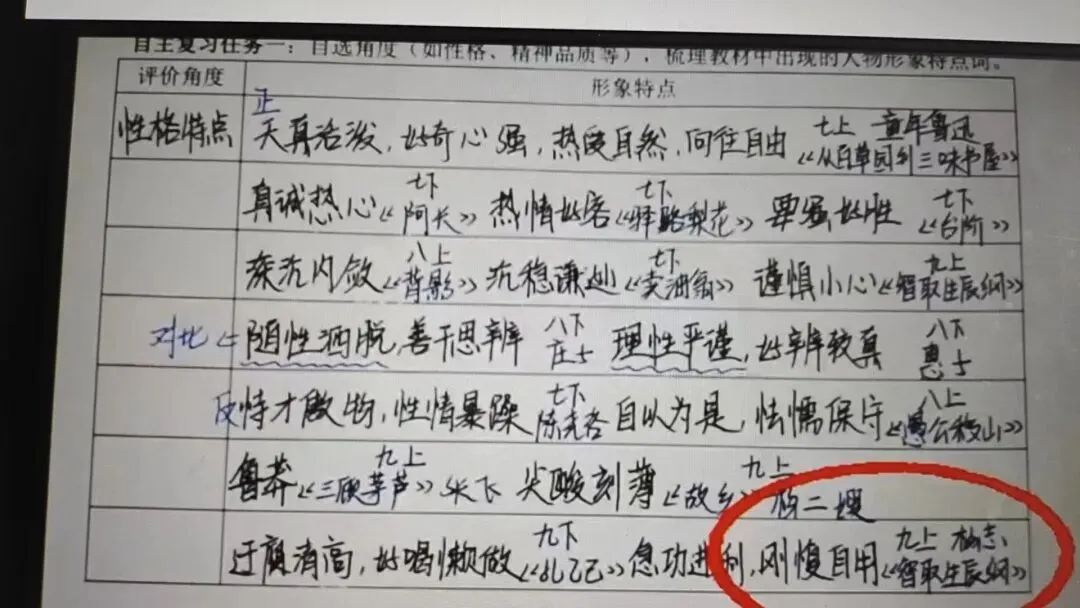 自主复习任务一：自选角度（如性格、精神品质等），梳理教材中出现的人物形象特点词。
评价角度 形象特点
正
性格特点 天真活泼，好奇心强，热爱自然，向往自由 七上 童年鲁迅《从百草园到三味书屋》
真诚热心 七下《阿长》 热情好客 七下《驿路梨花》 要强好胜 七下《台阶》
深沉内敛 八上《背影》 沉稳谦逊 七下《卖油翁》 谨慎小心 九上《智取生辰纲》
对比 随性洒脱，善于思辨 八下 庄子 理性严谨，好辨较真 八下 惠子
反 恃才傲物，性情暴躁 七下 陈尧咨 自以为是，怯懦保守 八上《愚公移山》
鲁莽 九上《三顾茅芦》张飞 尖酸刻薄 九上《故乡》杨二嫂
迂腐清高，好喝懒做 九下《孔乙己》 急功进利，刚愎自用 九上 杨志《智取生辰纲》